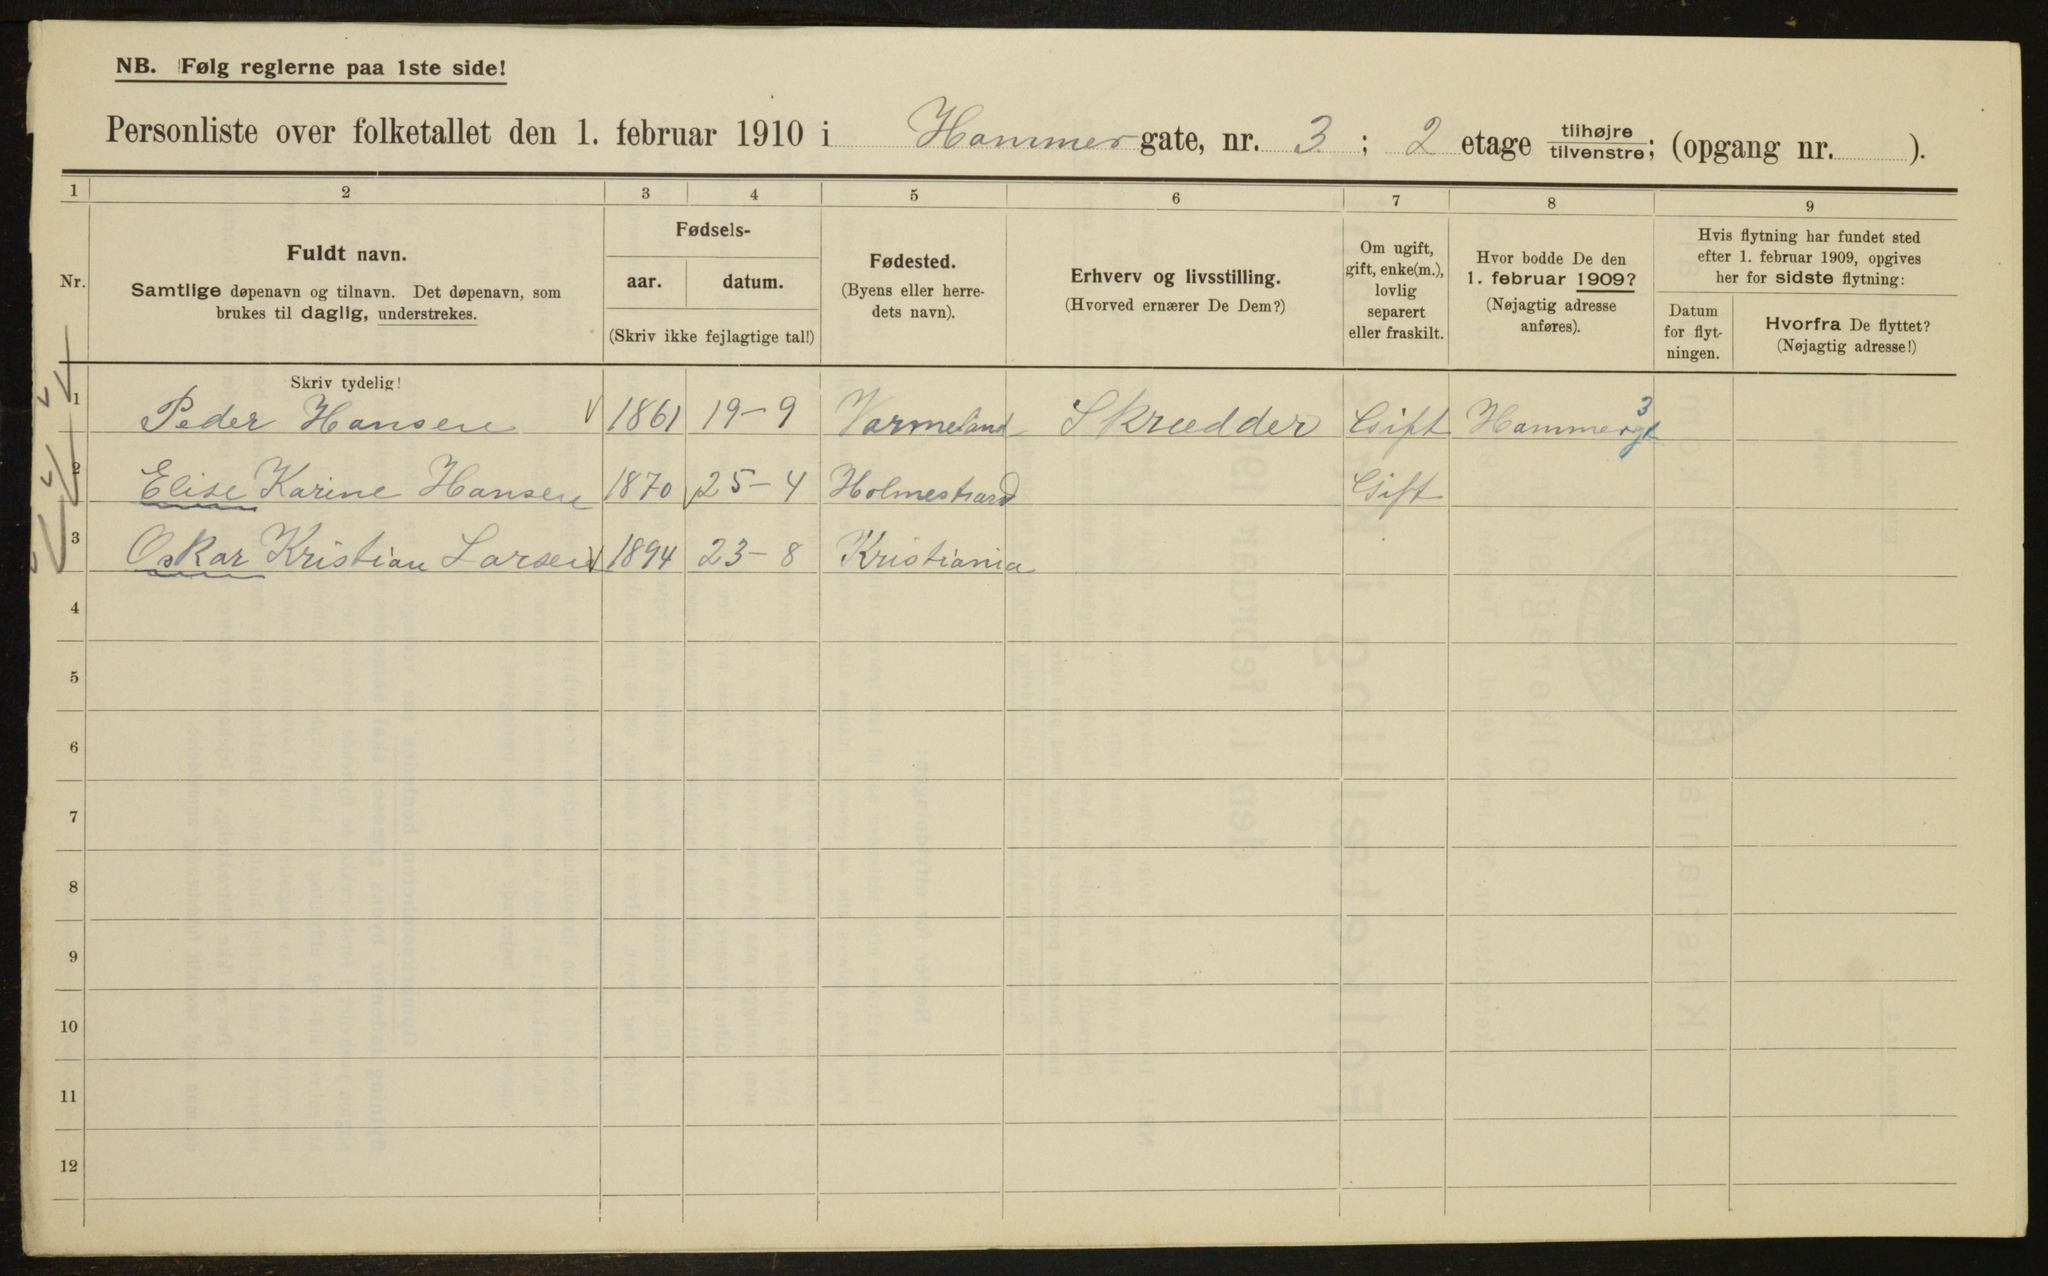 NB. Følg reglerne paa 1ste side!
Personliste over folketallet den 1. februar 1910 i Hammer gate, nr. 3 ; 2 etage tilhøjre/tilvenstre; (opgang nr. ).
1 2 3 4 5 6 7 8 9
Nr.
Fuldt navn.
Samtlige døpenavn og tilnavn. Det døpenavn, som
brukes til daglig, understrekes.
Fødsels-
aar. datum.
(Skriv ikke fejlagtige tal!)
Fødested.
(Byens eller herre-
dets navn).
Erhverv og livsstilling.
(Hvorved ernærer De Dem?)
Om ugift,
gift, enke(m.),
lovlig
separert
eller fraskilt.
Hvor bodde De den
1. februar 1909?
(Nøjagtig adresse
anføres).
Hvis flytning har fundet sted
efter 1. februar 1909, opgives
her for sidste flytning:
Datum
for flyt-
ningen.
Hvorfra De flyttet?
(Nøjagtig adresse!)
Skriv tydelig!
1 Peder Hansen 1861 19-9 Varmeland Skrædder Gift Hammergt 3
2 Elise Karine Hansen 1870 25-4 Holmestrand Gift
3 Oskar Kristian Larsen 1894 23-8 Kristiania
4
5
6
7
8
9
10
11
12